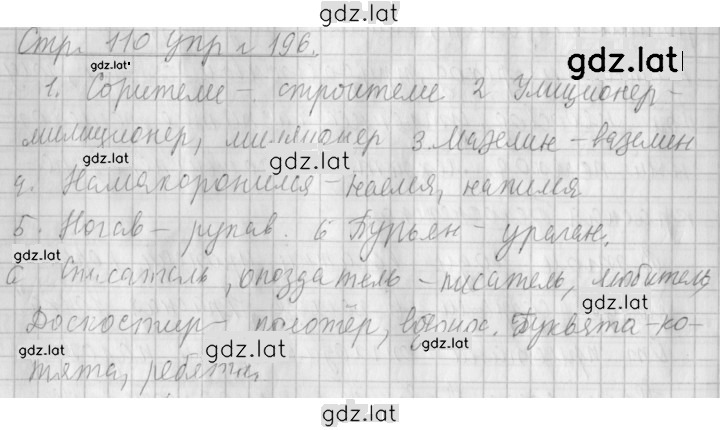 gdz.lat
Стр. 110 упр. 196.
gdz.lat
gdz.lat
1. Сорители - строители 2 Улиционер -
милиционер, миллионер 3. Мазелин - вазелин
gdz.lat
gdz.lat
4. Намакоронился - наелся, напился
5. Ногав - рукав. 6 Бурьян - ураган.
gdz.lat
6 Списатель, опоздатель - писатель, любитель,
gdz.lat
Доскостир - полотёр, Буквята - ко-
gdz.lat
gdz.lat
gdz.lat
тята, ребята.
gdz.lat